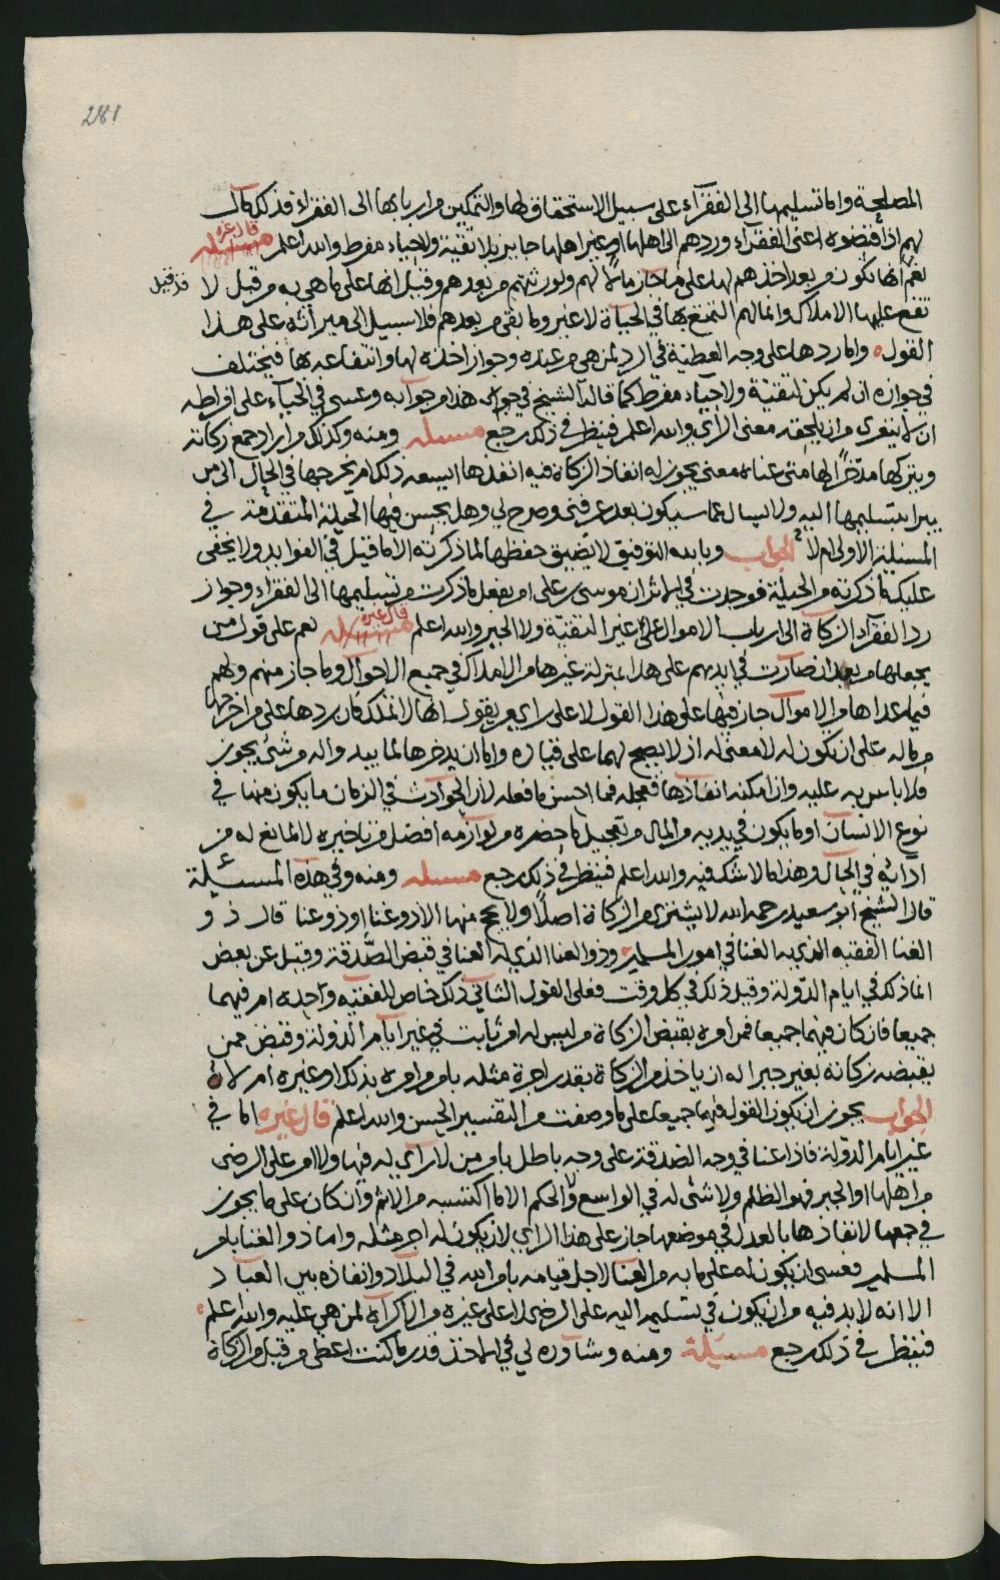 281
المصلحة واما تسليمها الى الفقرآء على سبيل الاستحقاق لها والتمكين من اربابها الى الفقراء فذلك مآل
لهم اذا قبضوه اعنى الفقرآء وردهم الى اهلها او غير اهلها جايز بلا تقية ولا حياء مفرط والله اعلم مسئله قال غيره
نعم انها تكون من بعد اخذهم لها على ما جاز مالا لهم ولورثتهم من بعدهم وقيل انها على ما هي به من قبل لا قد قيل
تقع عليها الاملاك وانما لهم التمتع بها في الحياة لا غير وما بقى من بعدهم فلا سبيل الى ميراثه على هذا
القول واما ردها على وجه العطية في الرد لمن هي من عنده وجواز اخذه لها وانتفاعه بها فيختلف
في جوازه ان لم يكن لتقيّة ولا حياء مفرط كما قاله الشيخ في جواب هذا من جوآبه وعسى في الحيآء على افراطه
ان لا يتعرى من ان يلحقه معنى الرأي والله اعلم فينظر في ذلك رجع مسئله ومنه وكذلك من اراد جمع زكاته
ويتركها مدّخرًا لها متى عناه معنى يجوز له انفاذ الزكاة فيه انفذها ايسعه ذلك ام يخرجها في الحال الى من
يبرا بتسليمها اليه ولا يسال عما سيكون بعد عرفنى وصرح لي وهل يحسن فيها الحيلة المتقدمة في
المسئلة الاولى ام لا الجواب وبالله التوفيق لا يضيق حفظها لما ذكرته الا ما قيل في الفوايد ولا يخفى
عليك ما ذكرته من الحيلة فوجدت في الاثر ان موسى بن على امر بفعل ما ذكرت من تسليمها الى الفقراء وجواز
رد الفقرآء الزكاة الى ارباب الاموال على غير التقيّة ولا الجبر والله اعلم مسئله قال غيره نعم على قول من
يجعلها من بعد ان صارت في ايديهم على هذا بمنزلة غيرها من الاملاك في جميع الاحوآل وما جاز منهم ولهم
فيما عداها من الاموآل جاز فيها على هذا القول لا على راي من يقول انها لا تملك فان ردها على من اخرجها
من ماله على ان يكون له لا معنى له اذ لا يصح لهما على قياده واما ان يدخرها لما يبد واله من شئ يجوز
فلا باس به عليه وان امكنه انفاذها فعجله فما احسن ما فعله لان الحوادث في الزمان ما يكون منها في
نوع الانسان او ما يكون في يديه من المال من تعجيل ما حضره من لوازمه افضل من تاخيره لا لمانع له من
ادائه في الحآل وهذا ما لا شك فيه والله اعلم فينظر في ذلك رجع مسئله ومنه وفي هذه المسئلة
قال الشيخ ابو سعيد رحمه الله لا يشترى من الزكاة اصلًا ولا يحج منها الا ذو غنا او ذو عنا قال ذو
الغنا الفقيه الذي به الغنا في امور المسلمين وذو العنا الذي له العنا في قبض الصّدقة وقيل عن بعض
انما ذلك في ايام الدّولة وقيل ذلك في كل وقت فعلى القول الثاني ذلك خاص للفقيه وآحده ام فيهما
جميعا فان كان فيهما جميعا فمن امره بقبض الزكاة من ليس له امر ثابت في غير ايآم الدولة وقبض ممن
يقبضه زكاته بغير جبر اله ان ياخذ من الزكاة بقدر اجرة مثله بامر من امره بذلك او غيره ام لا
الجواب يجوز ان يكون القول فيهما جميعا على ما وصفت من التفسير الحسن والله اعلم قال غيره اما في
غير ايام الدّولة فاذا عنا في وجه الصّدقة على وجه باطل بامر من لا رآي له فيها ولا امر على الرضى
من اهلها او الجبر فهو الظلم ولا شئ له في الواسع والحكم الا ما اكتسبه من الاثم وان كان على ما يجوز
في جمعها لانفاذها بالعدل في موضعها جاز على هذا الراي لان يكون له اجر مثله واما ذو الغنا بامر
المسلمين فعسى ان يكون له على ما به من الغنا لاجل قيامه بامر الله في البلاد وانفاذه بين العباد
الا انه لا بد فيه من ان يكون في تسليم اليه على الرضى لا على غيره من الاكرآه لمن هي عليه والله اعلم
فينظر في ذلك رجع مسئلة ومنه وشاوره لي في الاخذ قدر ما كنت اعطى من قبل من الزكاة